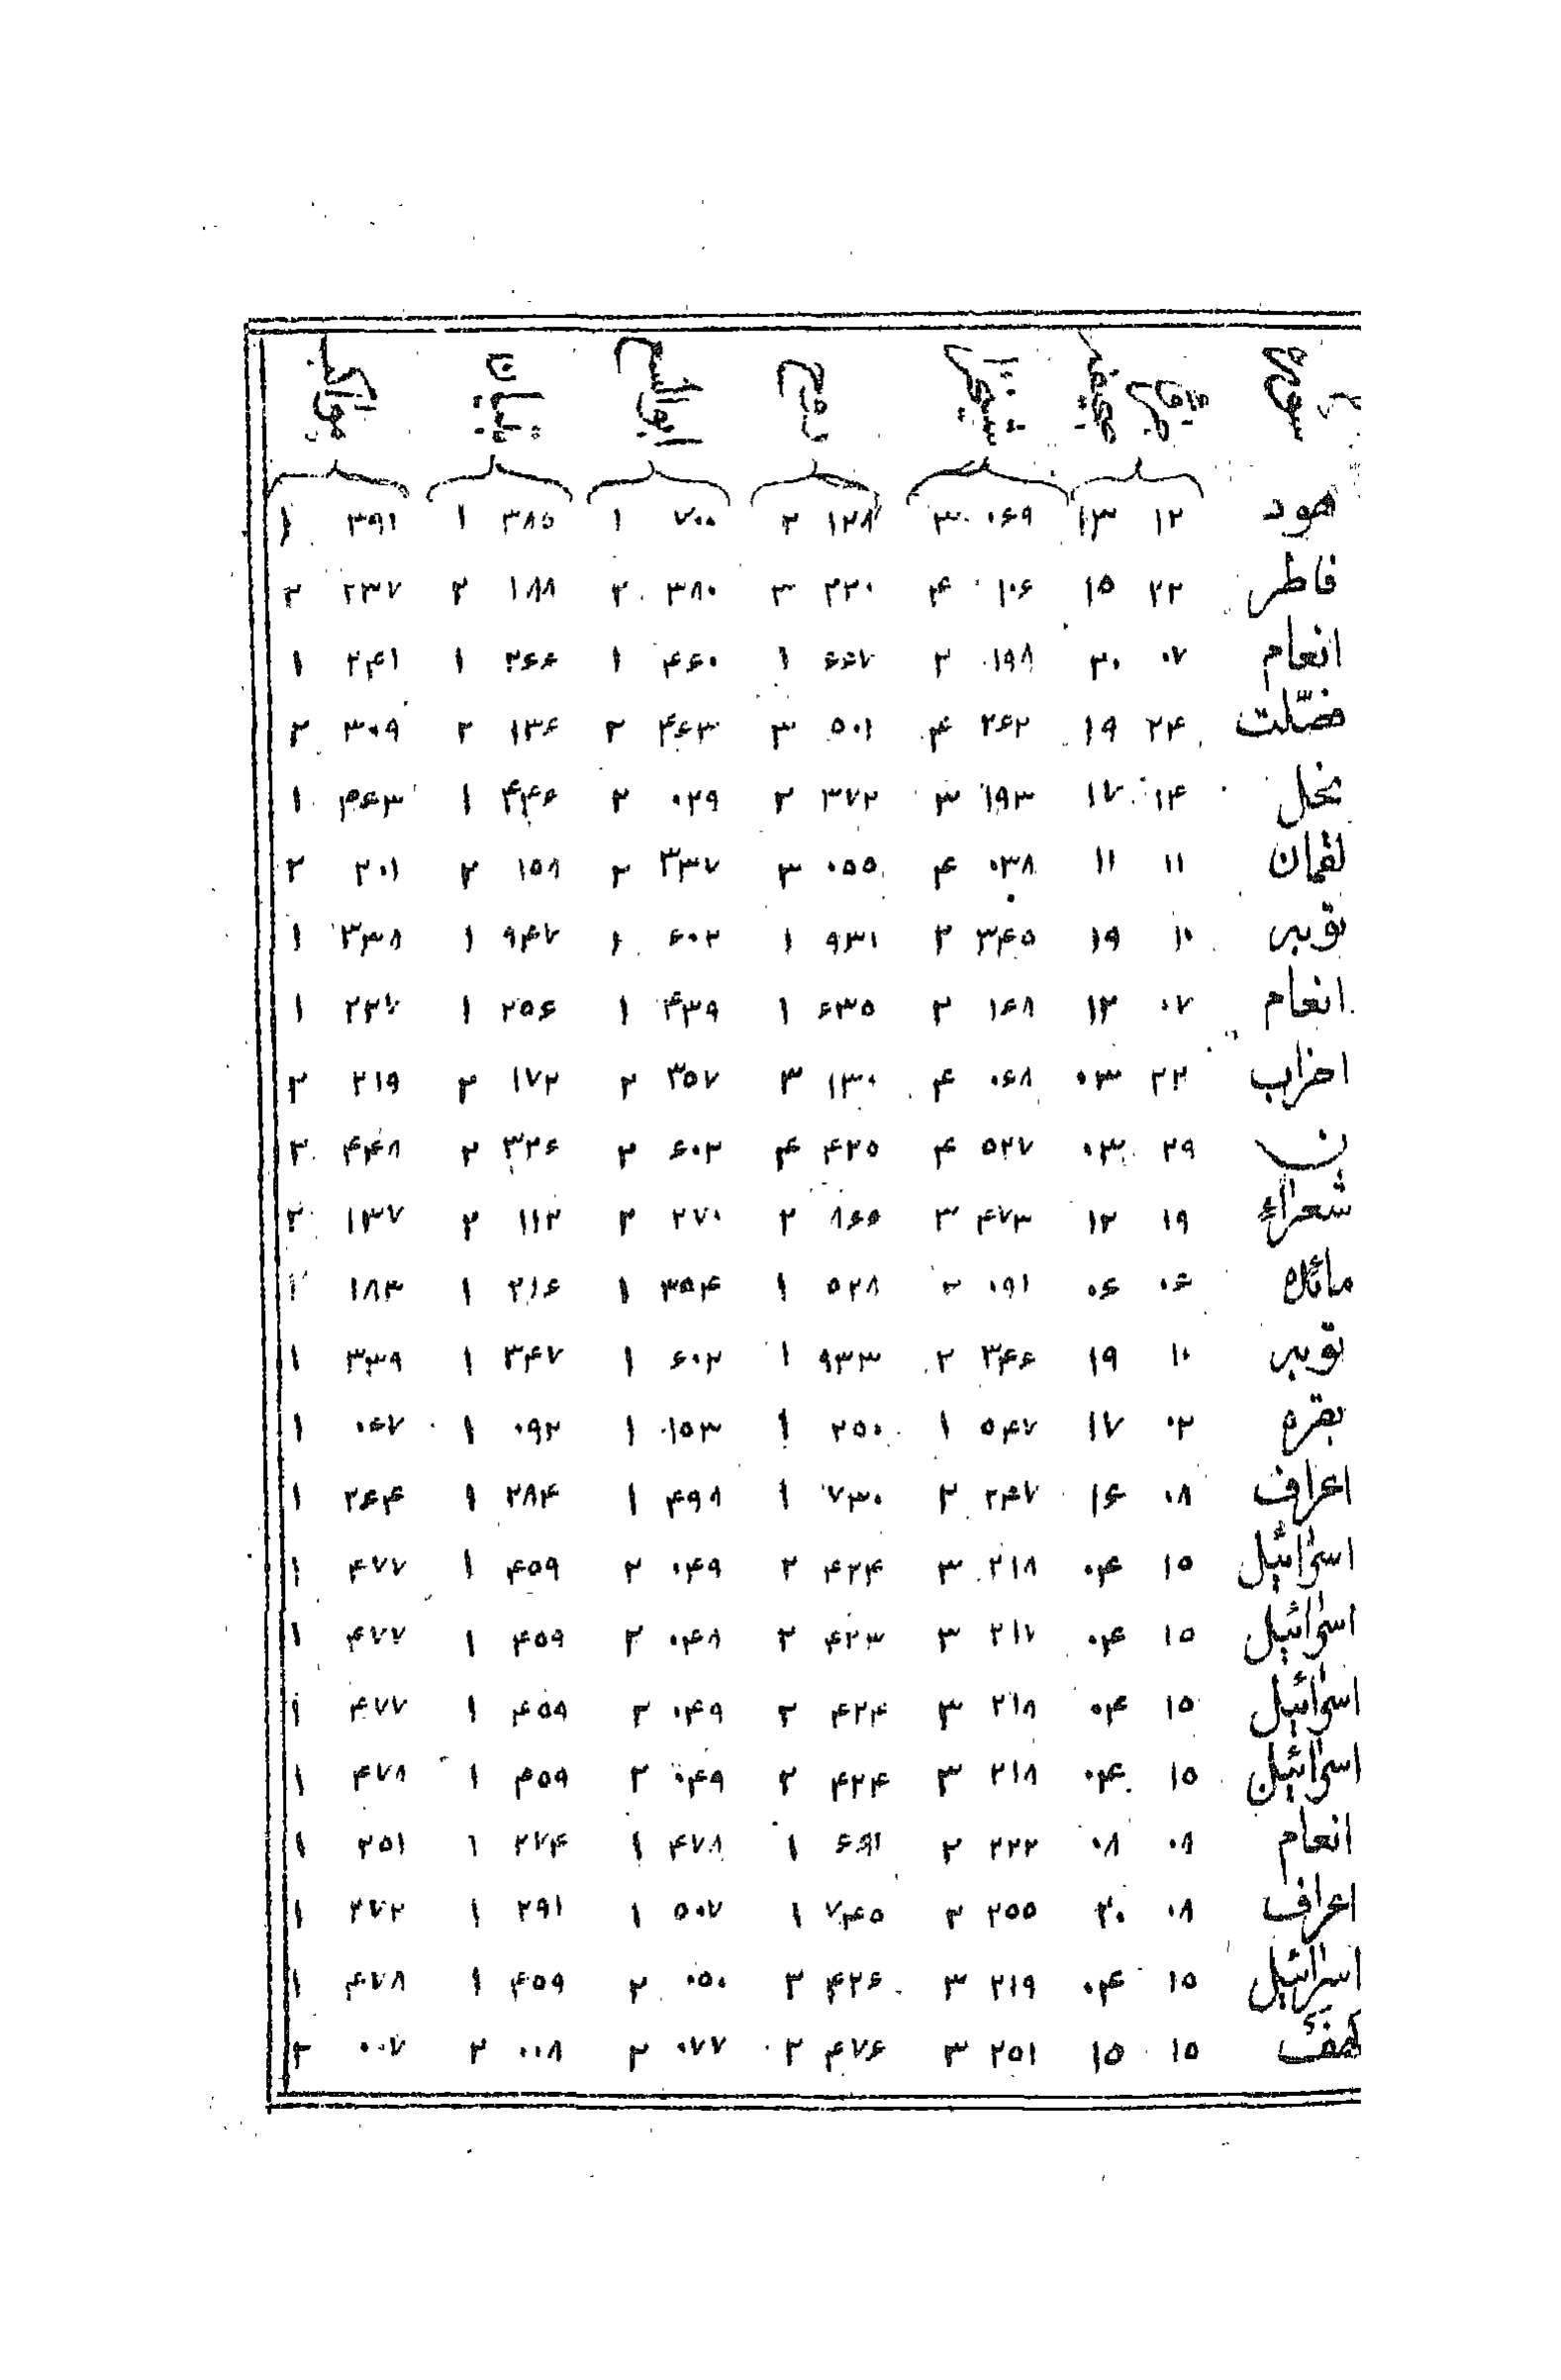 هود ۱۲ ۱۳ ۰۶۹ ۳ ۱۲۸ ۲ ۷۰۰ ۱ ۳۸۵ ۱ ۳۹۱ ۱
فاطر ۲۲ ۱۵ ۱۰۶ ۴ ۲۲۰ ۳ ۳۸۰ ۲ ۱۸۸ ۲ ۲۳۷ ۲
انعام ۰۷ ۲۰ ۱۹۸ ۲ ۶۶۷ ۱ ۴۶۰ ۱ ۲۶۶ ۱ ۲۴۱ ۱
فصّلت ۲۴ ۱۹ ۲۶۲ ۴ ۵۰۱ ۳ ۴۶۳ ۲ ۱۳۶ ۲ ۳۰۹ ۲
نحل ۱۴ ۱۷ ۱۹۳ ۳ ۳۷۲ ۲ ۰۲۹ ۲ ۴۴۶ ۱ ۴۶۳ ۱
لقمان ۱۱ ۱۱ ۰۳۸ ۴ ۰۵۵ ۳ ۳۳۷ ۲ ۱۵۸ ۲ ۲۰۱ ۲
توبه ۱۰ ۱۹ ۳۴۵ ۲ ۹۳۱ ۱ ۶۰۲ ۱ ۹۴۷ ۱ ۳۳۸ ۱
انعام ۰۷ ۱۲ ۱۶۸ ۲ ۶۳۵ ۱ ۴۳۹ ۱ ۲۵۶ ۱ ۲۲۷ ۱
احزاب ۲۲ ۰۳ ۰۶۸ ۴ ۱۳۰ ۳ ۳۵۷ ۲ ۱۷۲ ۲ ۲۱۹ ۲
ن ۲۹ ۰۳ ۵۲۷ ۴ ۴۲۵ ۴ ۶۰۲ ۲ ۳۲۶ ۲ ۴۴۸ ۲
شعراء ۱۹ ۱۲ ۴۷۳ ۳ ۸۶۶ ۲ ۲۷۰ ۲ ۱۱۲ ۲ ۱۳۷ ۲
مائده ۰۶ ۰۶ ۰۹۱ ۲ ۵۲۸ ۱ ۳۵۴ ۱ ۲۱۶ ۱ ۱۸۳ ۱
توبه ۱۰ ۱۹ ۳۴۶ ۲ ۹۳۳ ۱ ۶۰۲ ۱ ۳۴۷ ۱ ۳۳۹ ۱
بقره ۰۲ ۱۷ ۵۴۷ ۱ ۲۵۰ ۱ ۱۵۳ ۱ ۰۹۲ ۱ ۰۶۷ ۱
اعراف ۰۸ ۱۶ ۲۴۷ ۲ ۷۳۰ ۱ ۴۹۸ ۱ ۲۸۴ ۱ ۲۶۴ ۱
اسرائیل ۱۵ ۰۴ ۲۱۸ ۳ ۴۲۴ ۲ ۰۴۹ ۲ ۴۵۹ ۱ ۴۷۷ ۱
اسرائیل ۱۵ ۰۴ ۲۱۷ ۳ ۴۲۳ ۲ ۰۴۸ ۲ ۴۵۹ ۱ ۴۷۷ ۱
اسرائیل ۱۵ ۰۴ ۲۱۸ ۳ ۴۲۴ ۲ ۰۴۹ ۲ ۴۵۹ ۱ ۴۷۷ ۱
اسرائیل ۱۵ ۰۴ ۲۱۸ ۳ ۴۲۴ ۲ ۰۴۹ ۲ ۴۵۹ ۱ ۴۷۸ ۱
انعام ۰۸ ۰۸ ۲۲۲ ۲ ۶۹۱ ۱ ۴۷۸ ۱ ۲۷۴ ۱ ۲۵۱ ۱
اعراف ۰۸ ۲۰ ۲۵۵ ۲ ۷۴۵ ۱ ۵۰۷ ۱ ۲۹۱ ۱ ۲۷۲ ۱
اسرائیل ۱۵ ۰۴ ۲۱۹ ۳ ۴۲۶ ۲ ۰۵۰ ۲ ۴۵۹ ۱ ۴۷۸ ۱
کهف ۱۵ ۱۵ ۲۵۱ ۳ ۴۷۶ ۲ ۰۷۷ ۲ ۰۰۸ ۲ ۰۰۷ ۲